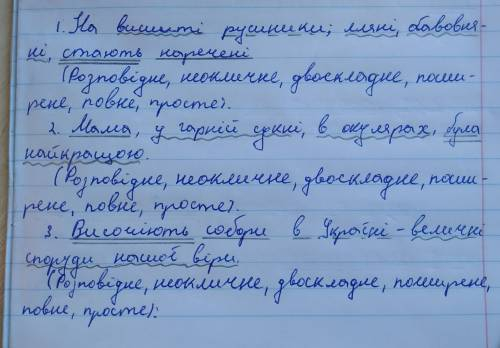 1. На вишиті рушники; лляні, бавовня-
ні, стають наречені
(Розповідне, неокличне, двоскладне, поши-
рене, повне, просте).
2. Мама, у гарній сукні, в окулярах, була
найкращою.
(Розповідне, неокличне, двоскладне, поши-
рене, повне, просте).
3. Височіють собори в Україні - величні
споруди нашої віри.
(Розповідне, неокличне, двоскладне, поширене,
повне, просте).